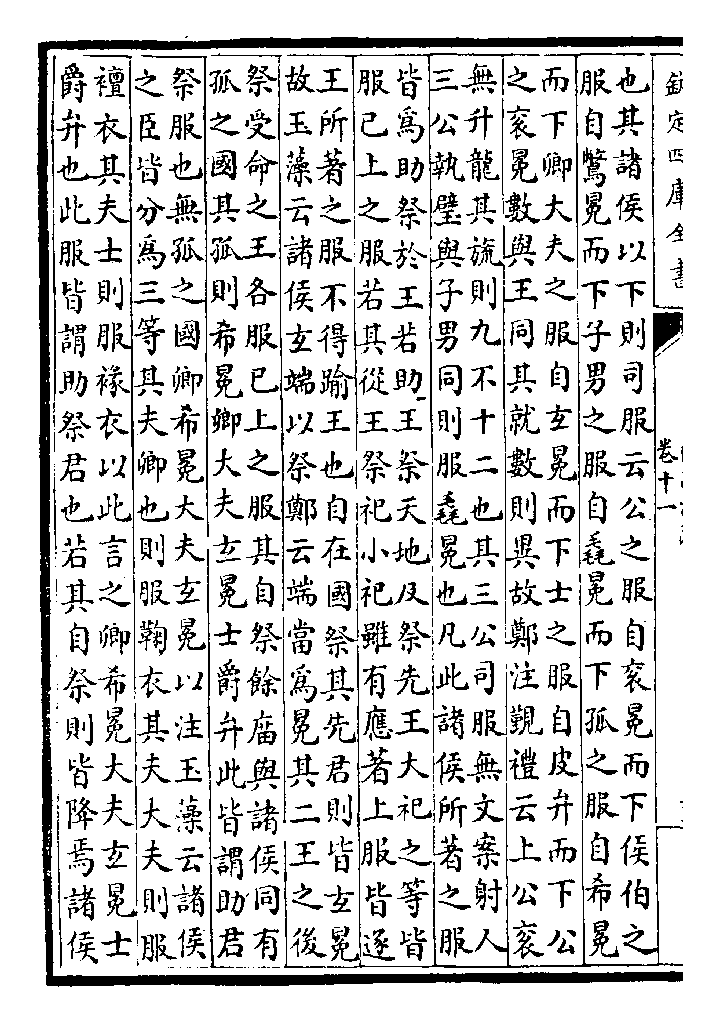 欽定四庫全書
卷十一
也其諸侯以下則司服云公之服自衮冕而下侯伯之
服自鷩冕而下子男之服自毳冕而下孤之服自希冕
而下卿大夫之服自玄冕而下士之服自皮弁而下公
之衮冕數與王同其就數則異故鄭注覲禮云上公衮
無升龍其旒則九不十二也其三公司服無文案射人
三公執璧與子男同則服毳冕也凡此諸侯所著之服
皆爲助祭於王若助王祭天地及祭先王大祀之等皆
服已上之服若其從王祭祀小祀雖有應著上服皆逐
王所著之服不得踰王也自在國祭其先君則皆玄冕
故玉藻云諸侯玄端以祭鄭云端當爲冕其二王之後
祭受命之王各服已上之服其自祭餘庿與諸侯同有
孤之國其孤則希冕卿大夫玄冕士爵弁此皆謂助君
祭服也無孤之國卿希冕大夫玄冕以注玉藻云諸侯
之臣皆分爲三等其夫卿也則服鞠衣其夫大夫則服
襢衣其夫士則服褖衣以此言之卿希冕大夫玄冕士
爵弁也此服皆謂助祭君也若其自祭則皆降焉諸侯